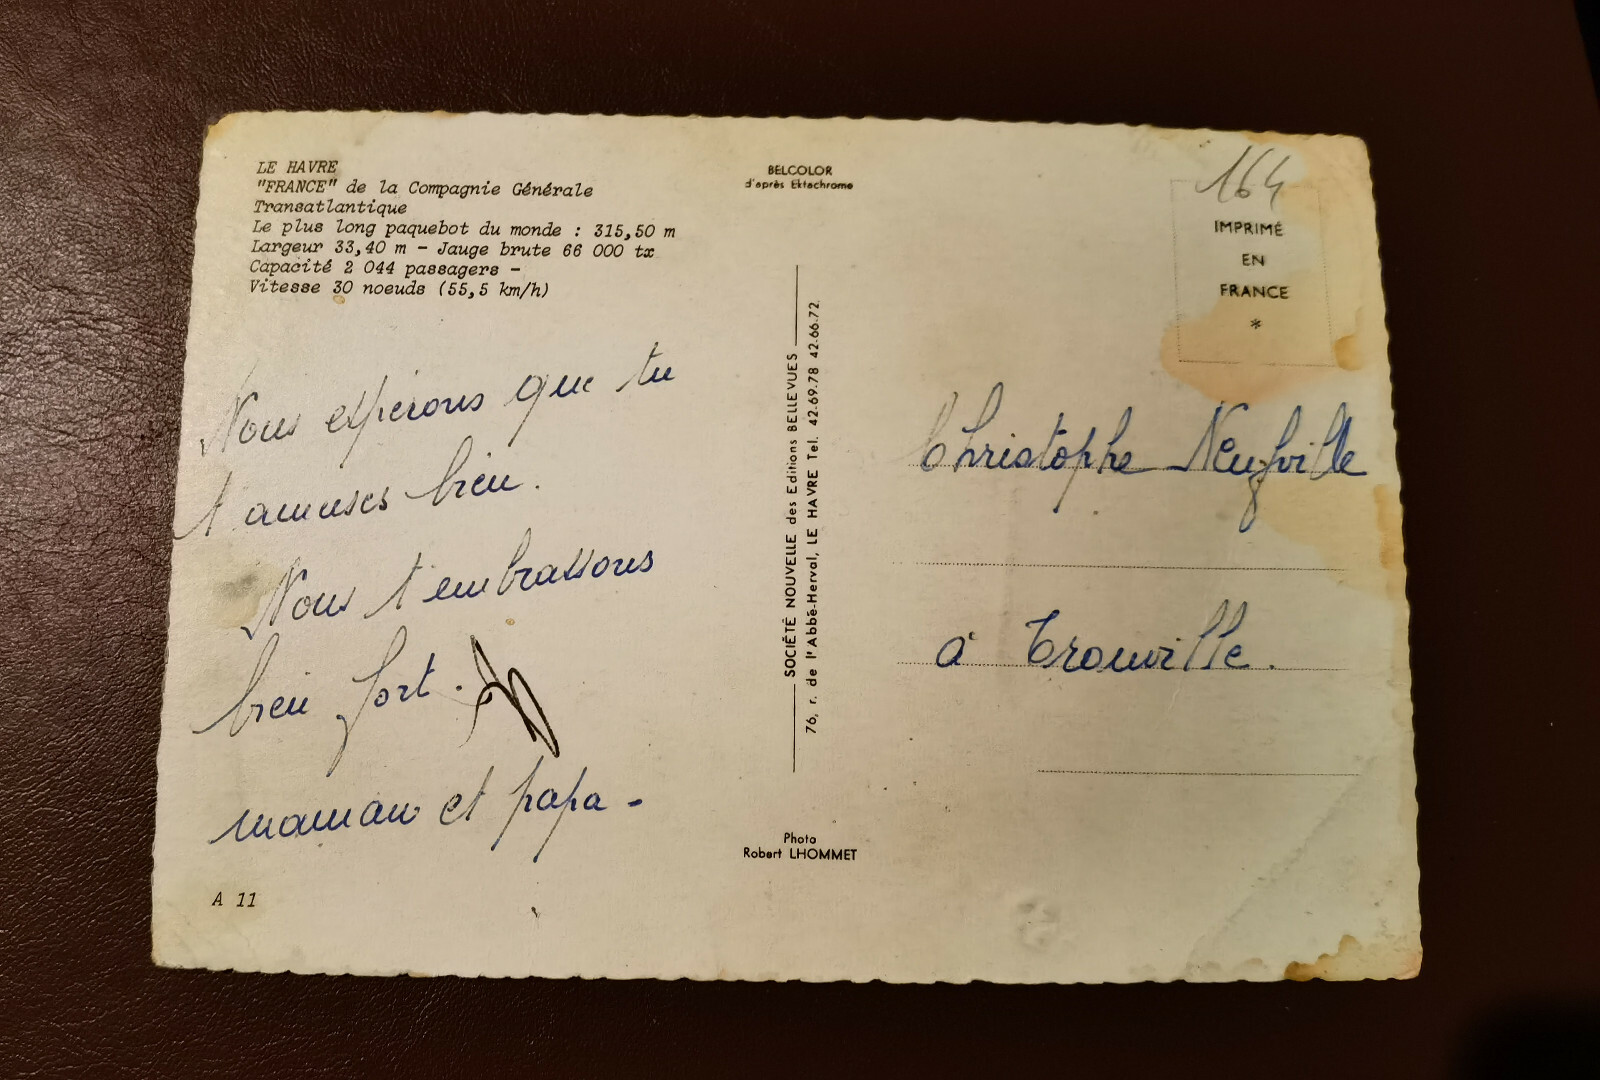 LE HAVRE
"FRANCE" de la Compagnie Générale
Transatlantique
Le plus long paquebot du monde : 315,50 m
Largeur 33,40 m - Jauge brute 66 000 tx
Capacité 2 044 passagers -
Vitesse 30 noeuds (55,5 km/h)
Nous espérons que tu
t'amuses bien.
Nous t'embrassons
bien fort.
maman et papa -
A 11
BELCOLOR
d'après Ektachrome
SOCIÉTÉ NOUVELLE des Editions BELLEVUES
76, r. de l'Abbé-Herval, LE HAVRE Tel. 42.69.78 42.66.72
Photo
Robert LHOMMET
164
IMPRIMÉ
EN
FRANCE
*
Christophe Neufville
à Trouville.